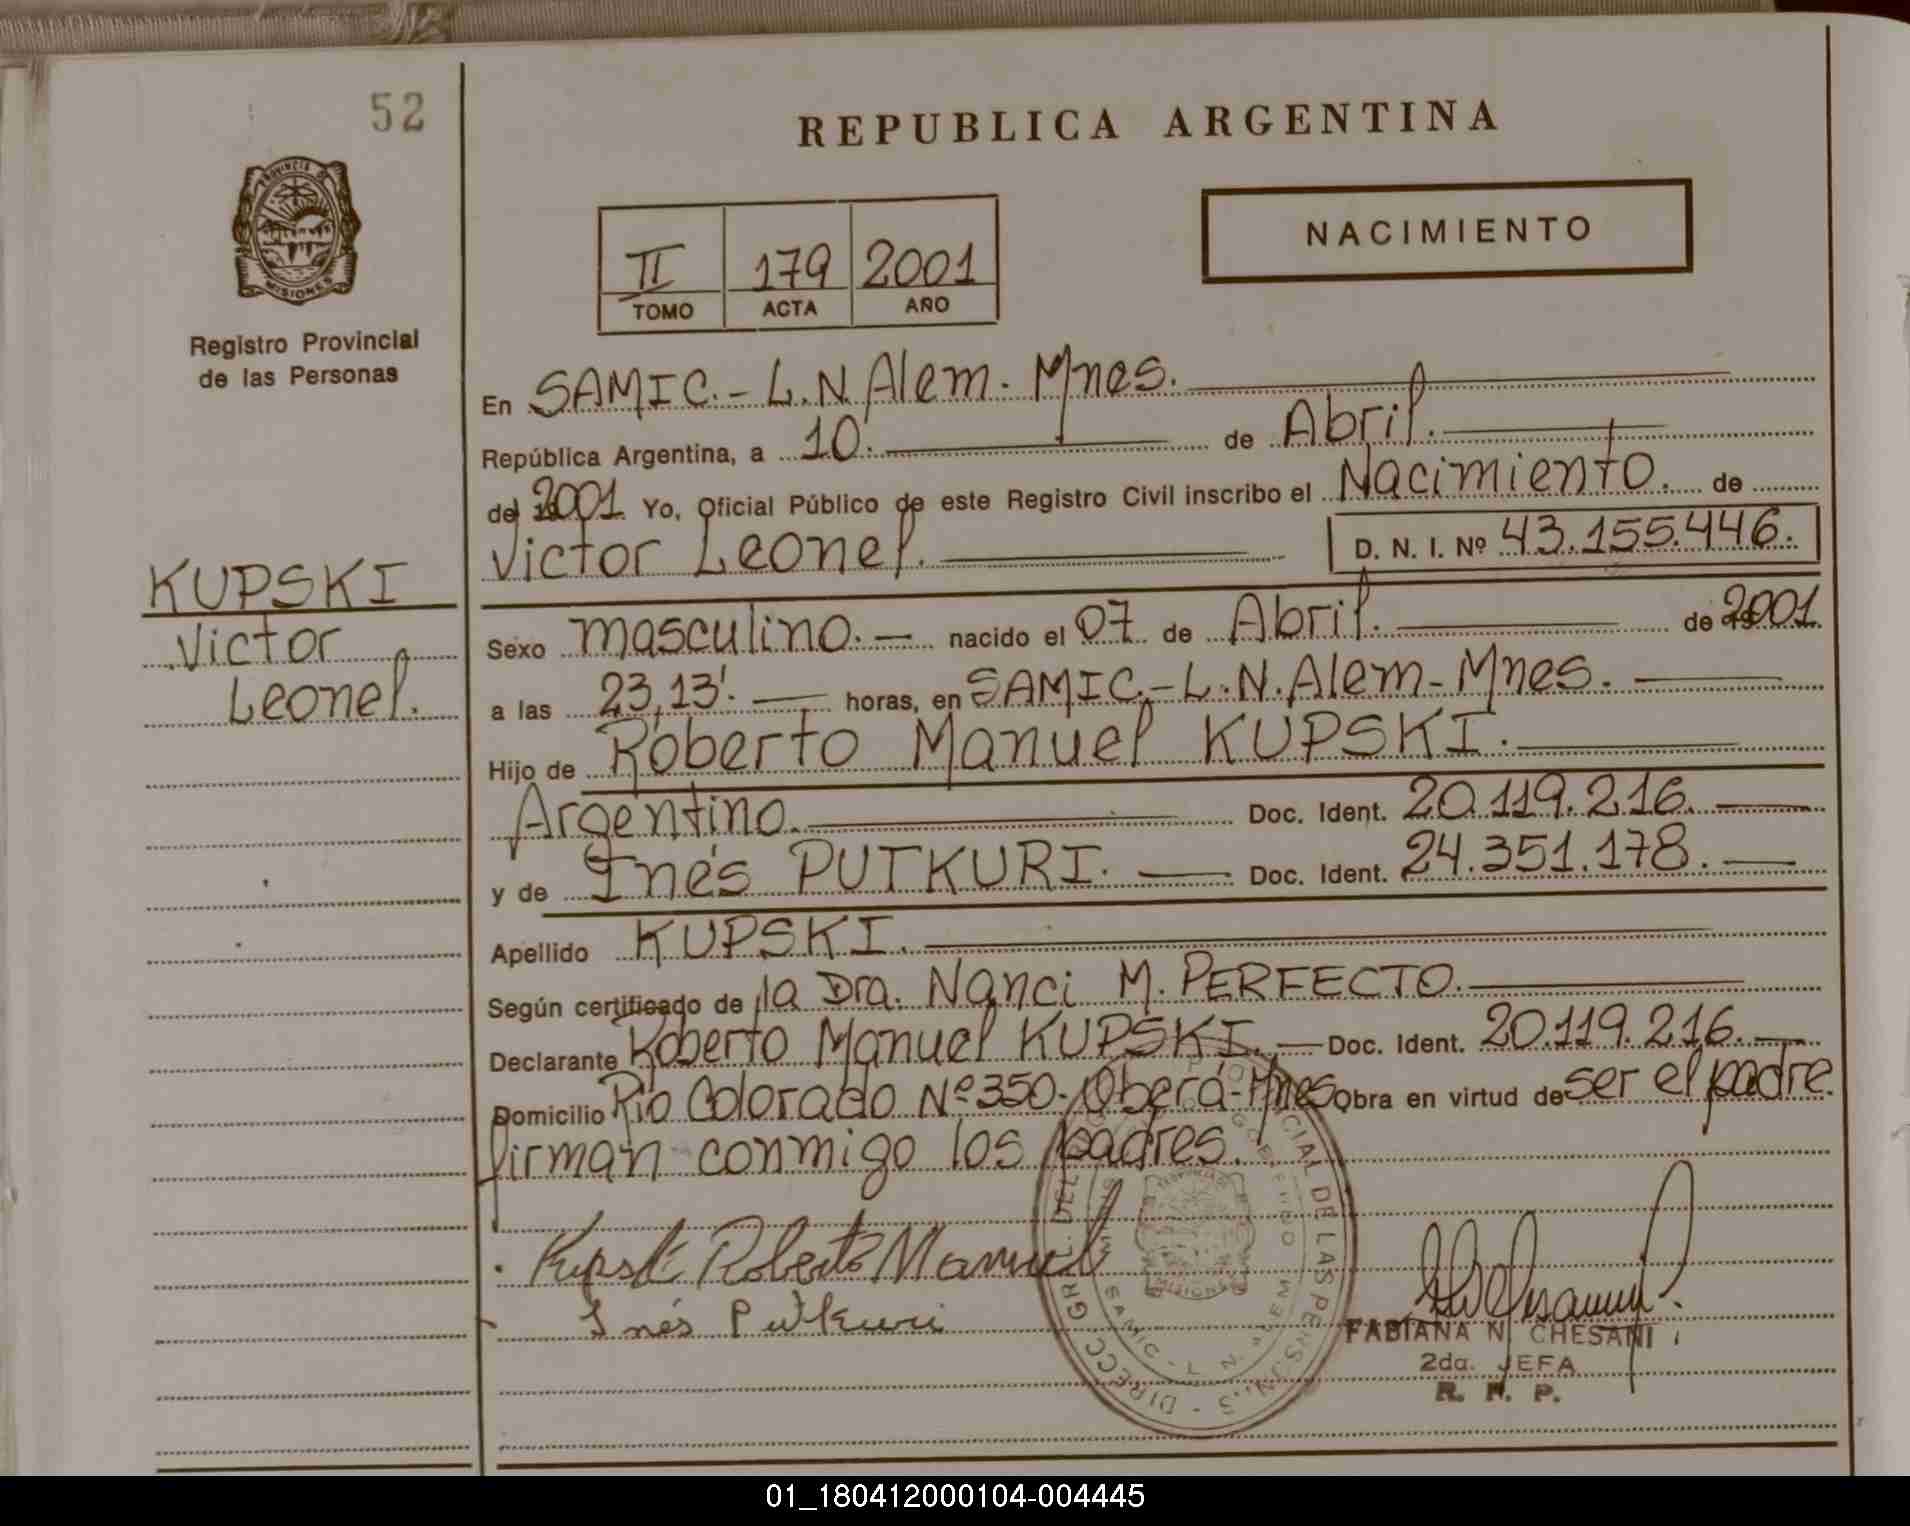 52
REPUBLICA ARGENTINA
PROVINCIA DE
MISIONES
Registro Provincial
de las Personas
II 179 2001
TOMO ACTA AÑO
NACIMIENTO
En SAMIC.- L.N.Alem. Mnes.
República Argentina, a 10. de Abril.
de 2001. Yo, Oficial Público de este Registro Civil inscribo el Nacimiento. de
Victor Leonel. D. N. I. Nº 43.155.446.
KUPSKI
Victor
Leonel.
Sexo masculino. nacido el 07 de Abril. de 2001
a las 23,13'. horas, en SAMIC.-L.N.Alem-Mnes.
Hijo de Roberto Manuel KUPSKI.
Argentino. Doc. Ident. 20.119.216.
y de Inés PUTKURI. Doc. Ident. 24.351.178.
Apellido KUPSKI.
Según certificado de la Dra. Nanci M. PERFECTO.
Declarante Roberto Manuel KUPSKI. Doc. Ident. 20.119.216.
Domicilio Río Colorado Nº 350-Oberá-Mnes Obra en virtud de ser el padre.
firman conmigo los padres.
Kupski Roberto Manuel
Inés Putkuri
FABIANA N. CHESANI
2da. JEFA
R. P. P.
SAMIC - L. N. ALEM
MISIONES
01_180412000104-004445